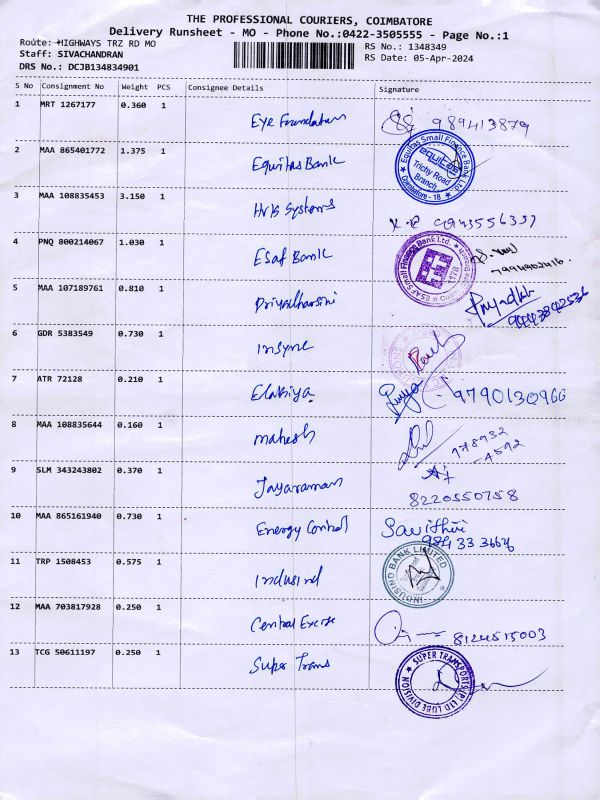 THE PROFESSIONAL COURIERS, COIMBATORE
Delivery Runsheet - MO - Phone No.:0422-3505555 - Page No.:1
Route: HIGHWAYS TRZ RD MO
RS No.: 1348349
Staff: SIVACHANDRAN
RS Date: 05-Apr-2024
DRS No.: DCJB134834901
S No Consignment No Weight PCS Consignee Details Signature
1 MRT 1267177 0.360 1 Eye Foundation 989413879
2 MAA 865401772 1.375 1 Equitas Bank
Equitas Small Finance Bank Ltd.
equitas
Trichy Road
Branch
Coimbatore - 18
3 MAA 108835453 3.150 1 Systems
4 PNQ 800214067 1.030 1 Esaf Bank
ESAF Small Finance Bank Ltd.
5 MAA 107189761 0.810 1 Priyadharsini
6 GDR 5383549 0.730 1 Insync
7 ATR 72128 0.210 1 9790130960
8 MAA 108835644 0.160 1 Mahesh 178932
-4592
9 SLM 343243802 0.370 1 Jayaraman
8220550758
10 MAA 865161940 0.730 1 Energy Control Savithiri
11 TRP 1508453 0.575 1 Indusind
INDUSIND BANK LIMITED
12 MAA 703817928 0.250 1 Central Excise 8124515003
13 TCG 50611197 0.250 1 Super Trans
SUPER TRANSPORTS(P) LTD LUBE DIVISION